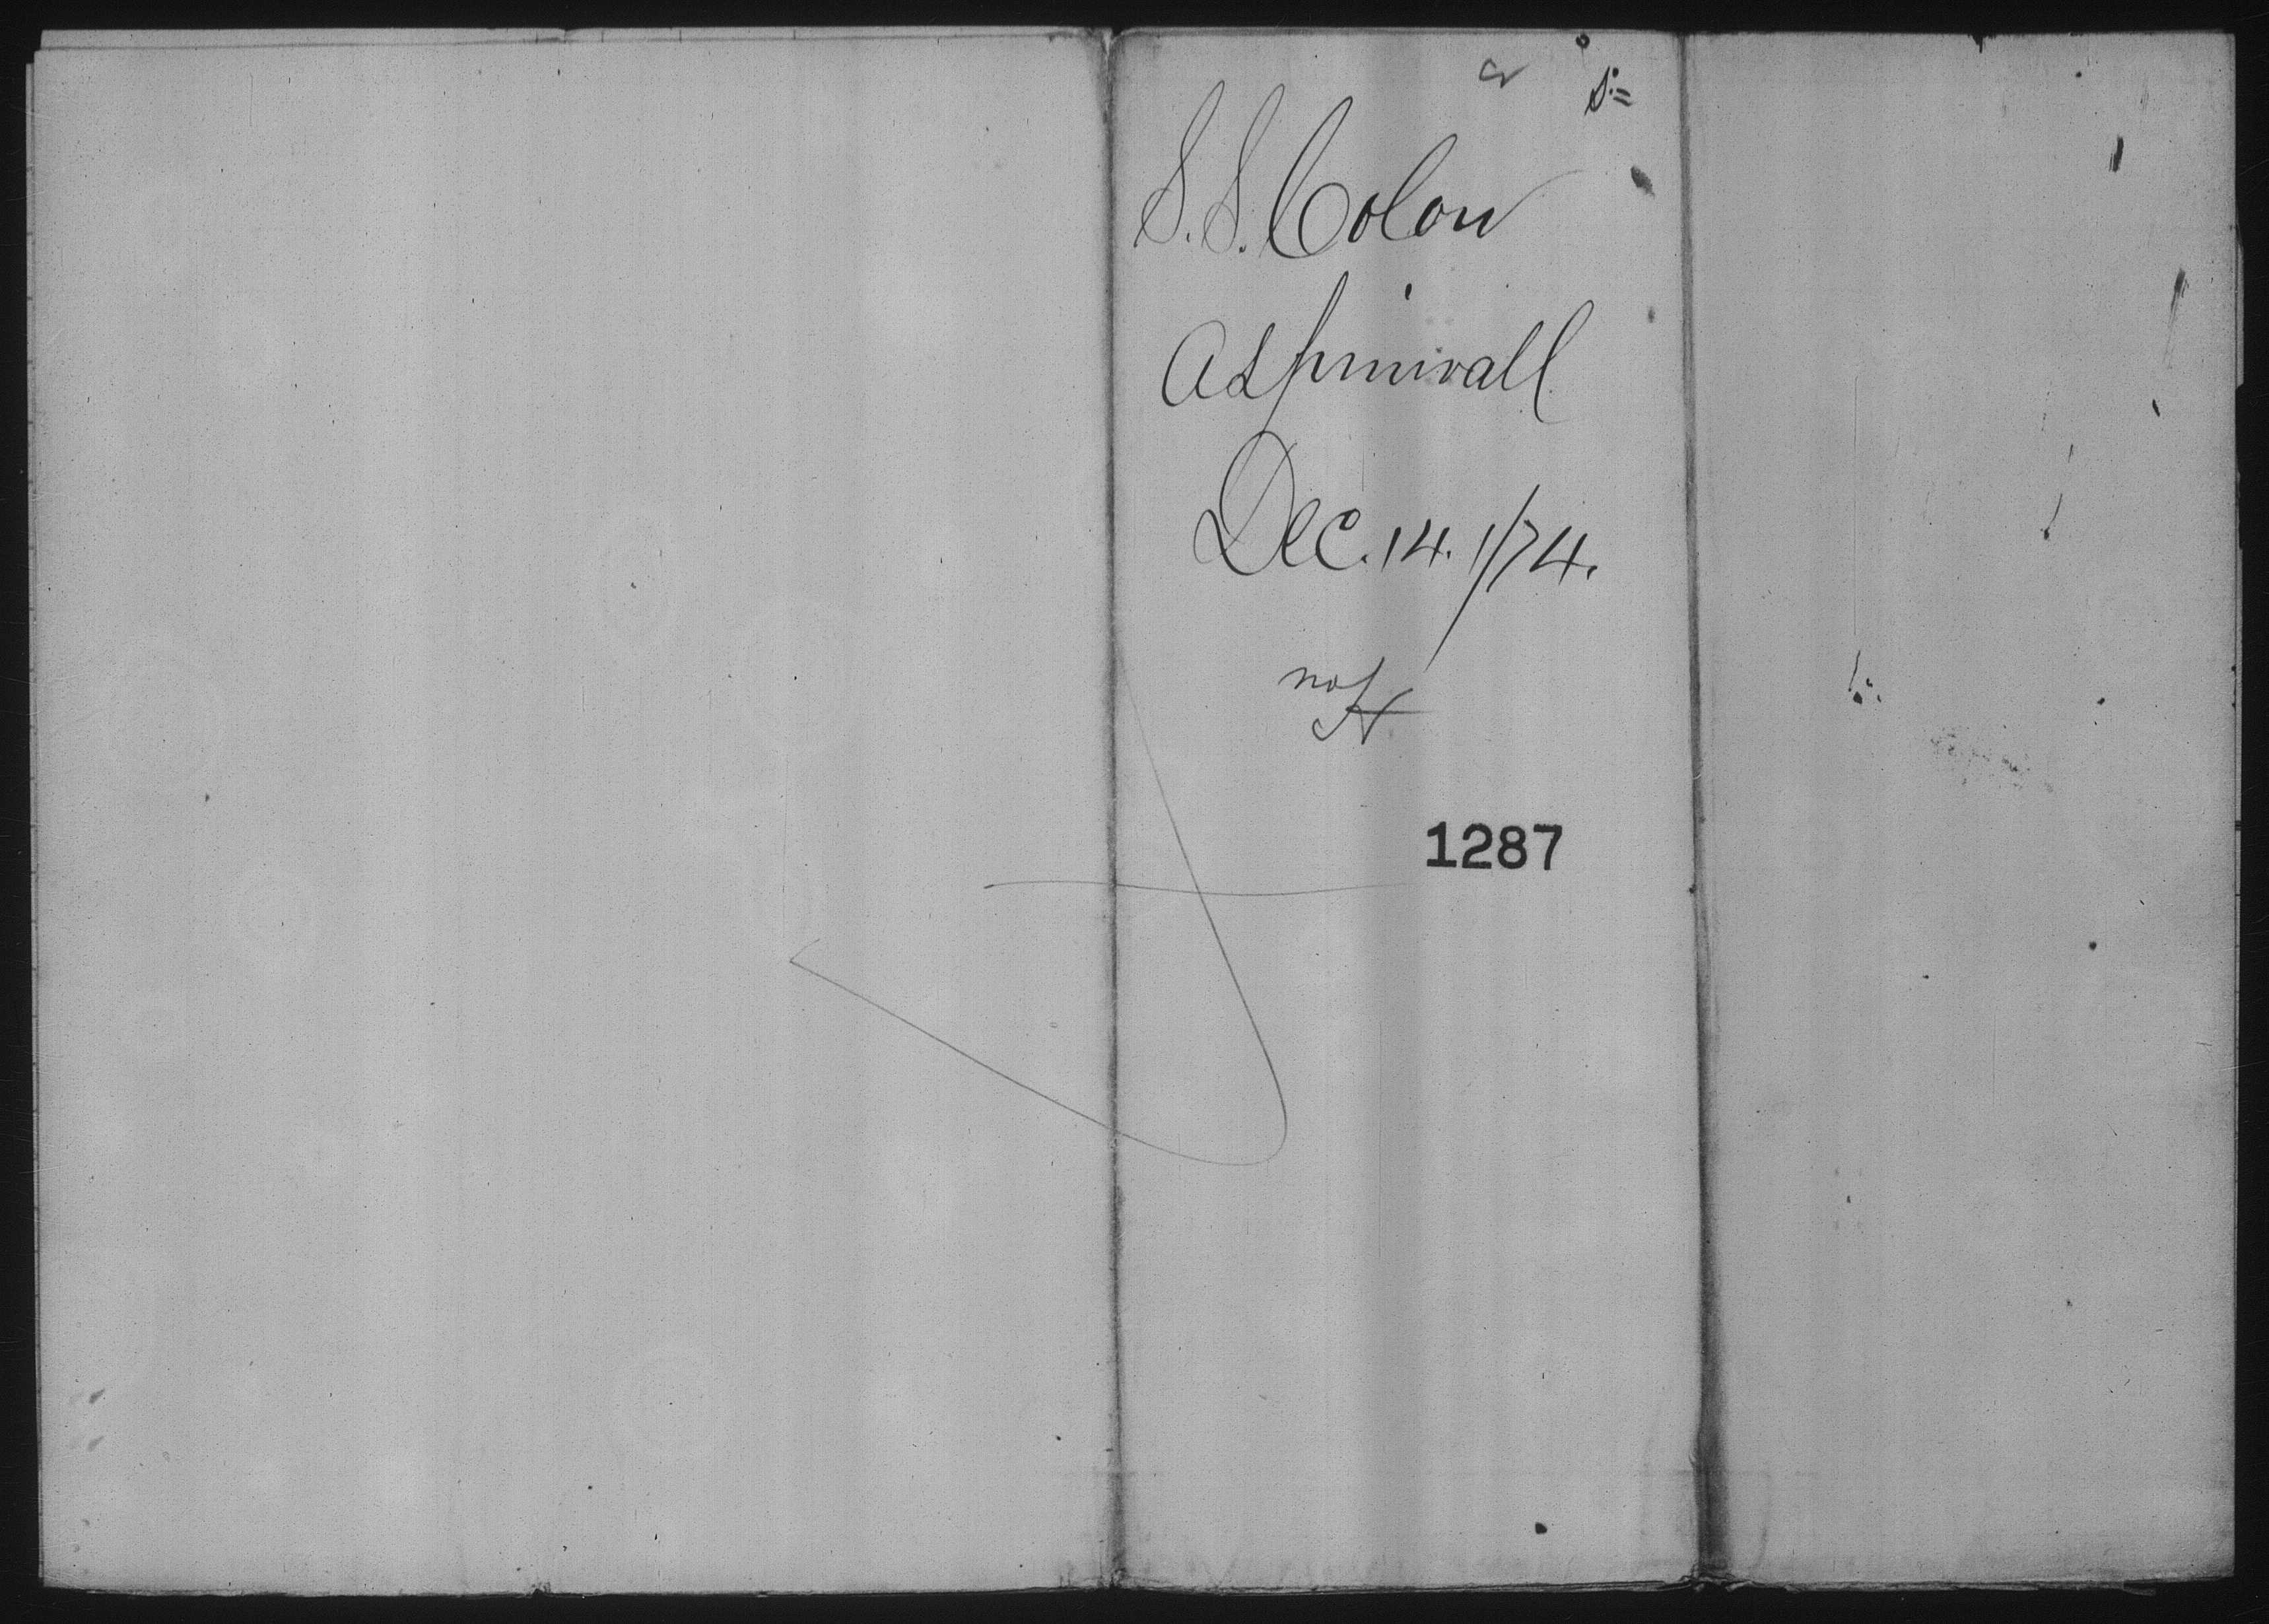 S.S. Colon
Aspinwall
Dec. 14. 1874.
1287